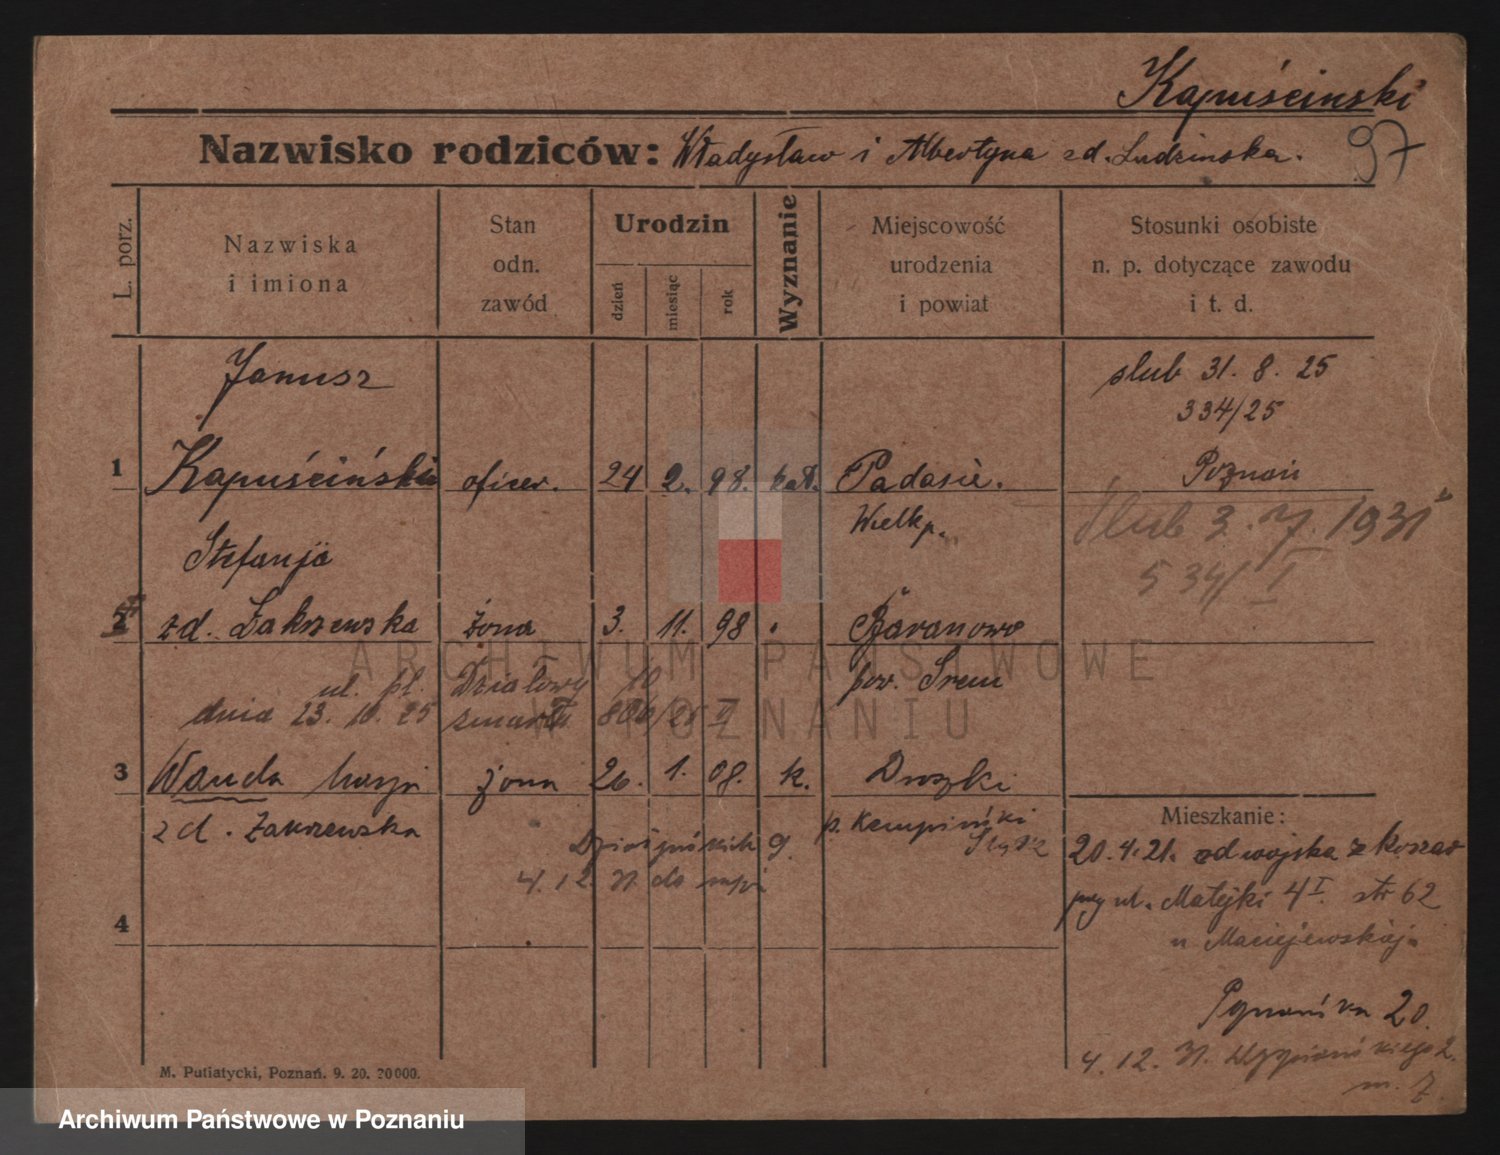 Kapuściński
97
Nazwisko rodziców: Władysław i Albertyna zd. Ludzinska.
L. porz.
Nazwiska
i imiona
Stan
odn.
zawód
Urodzin
dzień
miesiąc
rok
Wyznanie
Miejscowość
urodzenia
i powiat
Stosunki osobiste
n. p. dotyczące zawodu
i t. d.
Janusz
1 Kapuściński oficer. 24 2. 98. kat. Padasie.
Wielkp.
ślub 31. 8. 25
334/25
Poznań
Ślub 3. 7. 1931
534/I
Stefanja
2 zd. Zakrzewska żona 3. 11. 98 Baranowo
pow. Śrem
ul. pl. Działowy 10
dnia 23. 10. 25 zmarła
3 Wanda Marja żona 26. 1. 08. k. Droszki
zd. Zakrzewska p. Kempiński
4. 12. 31
4
Mieszkanie:
20. 4. 21. od wojska z koszar
przy ul. Matejki 4 I. str 62
u Maciejewskiej.
20.
4. 12. 31. Wyspiańskiego 2.
m. 7
M. Putiatycki, Poznań. 9. 20. 20000.
ARCHIWUM PAŃSTWOWE
W POZNANIU
Archiwum Państwowe w Poznaniu